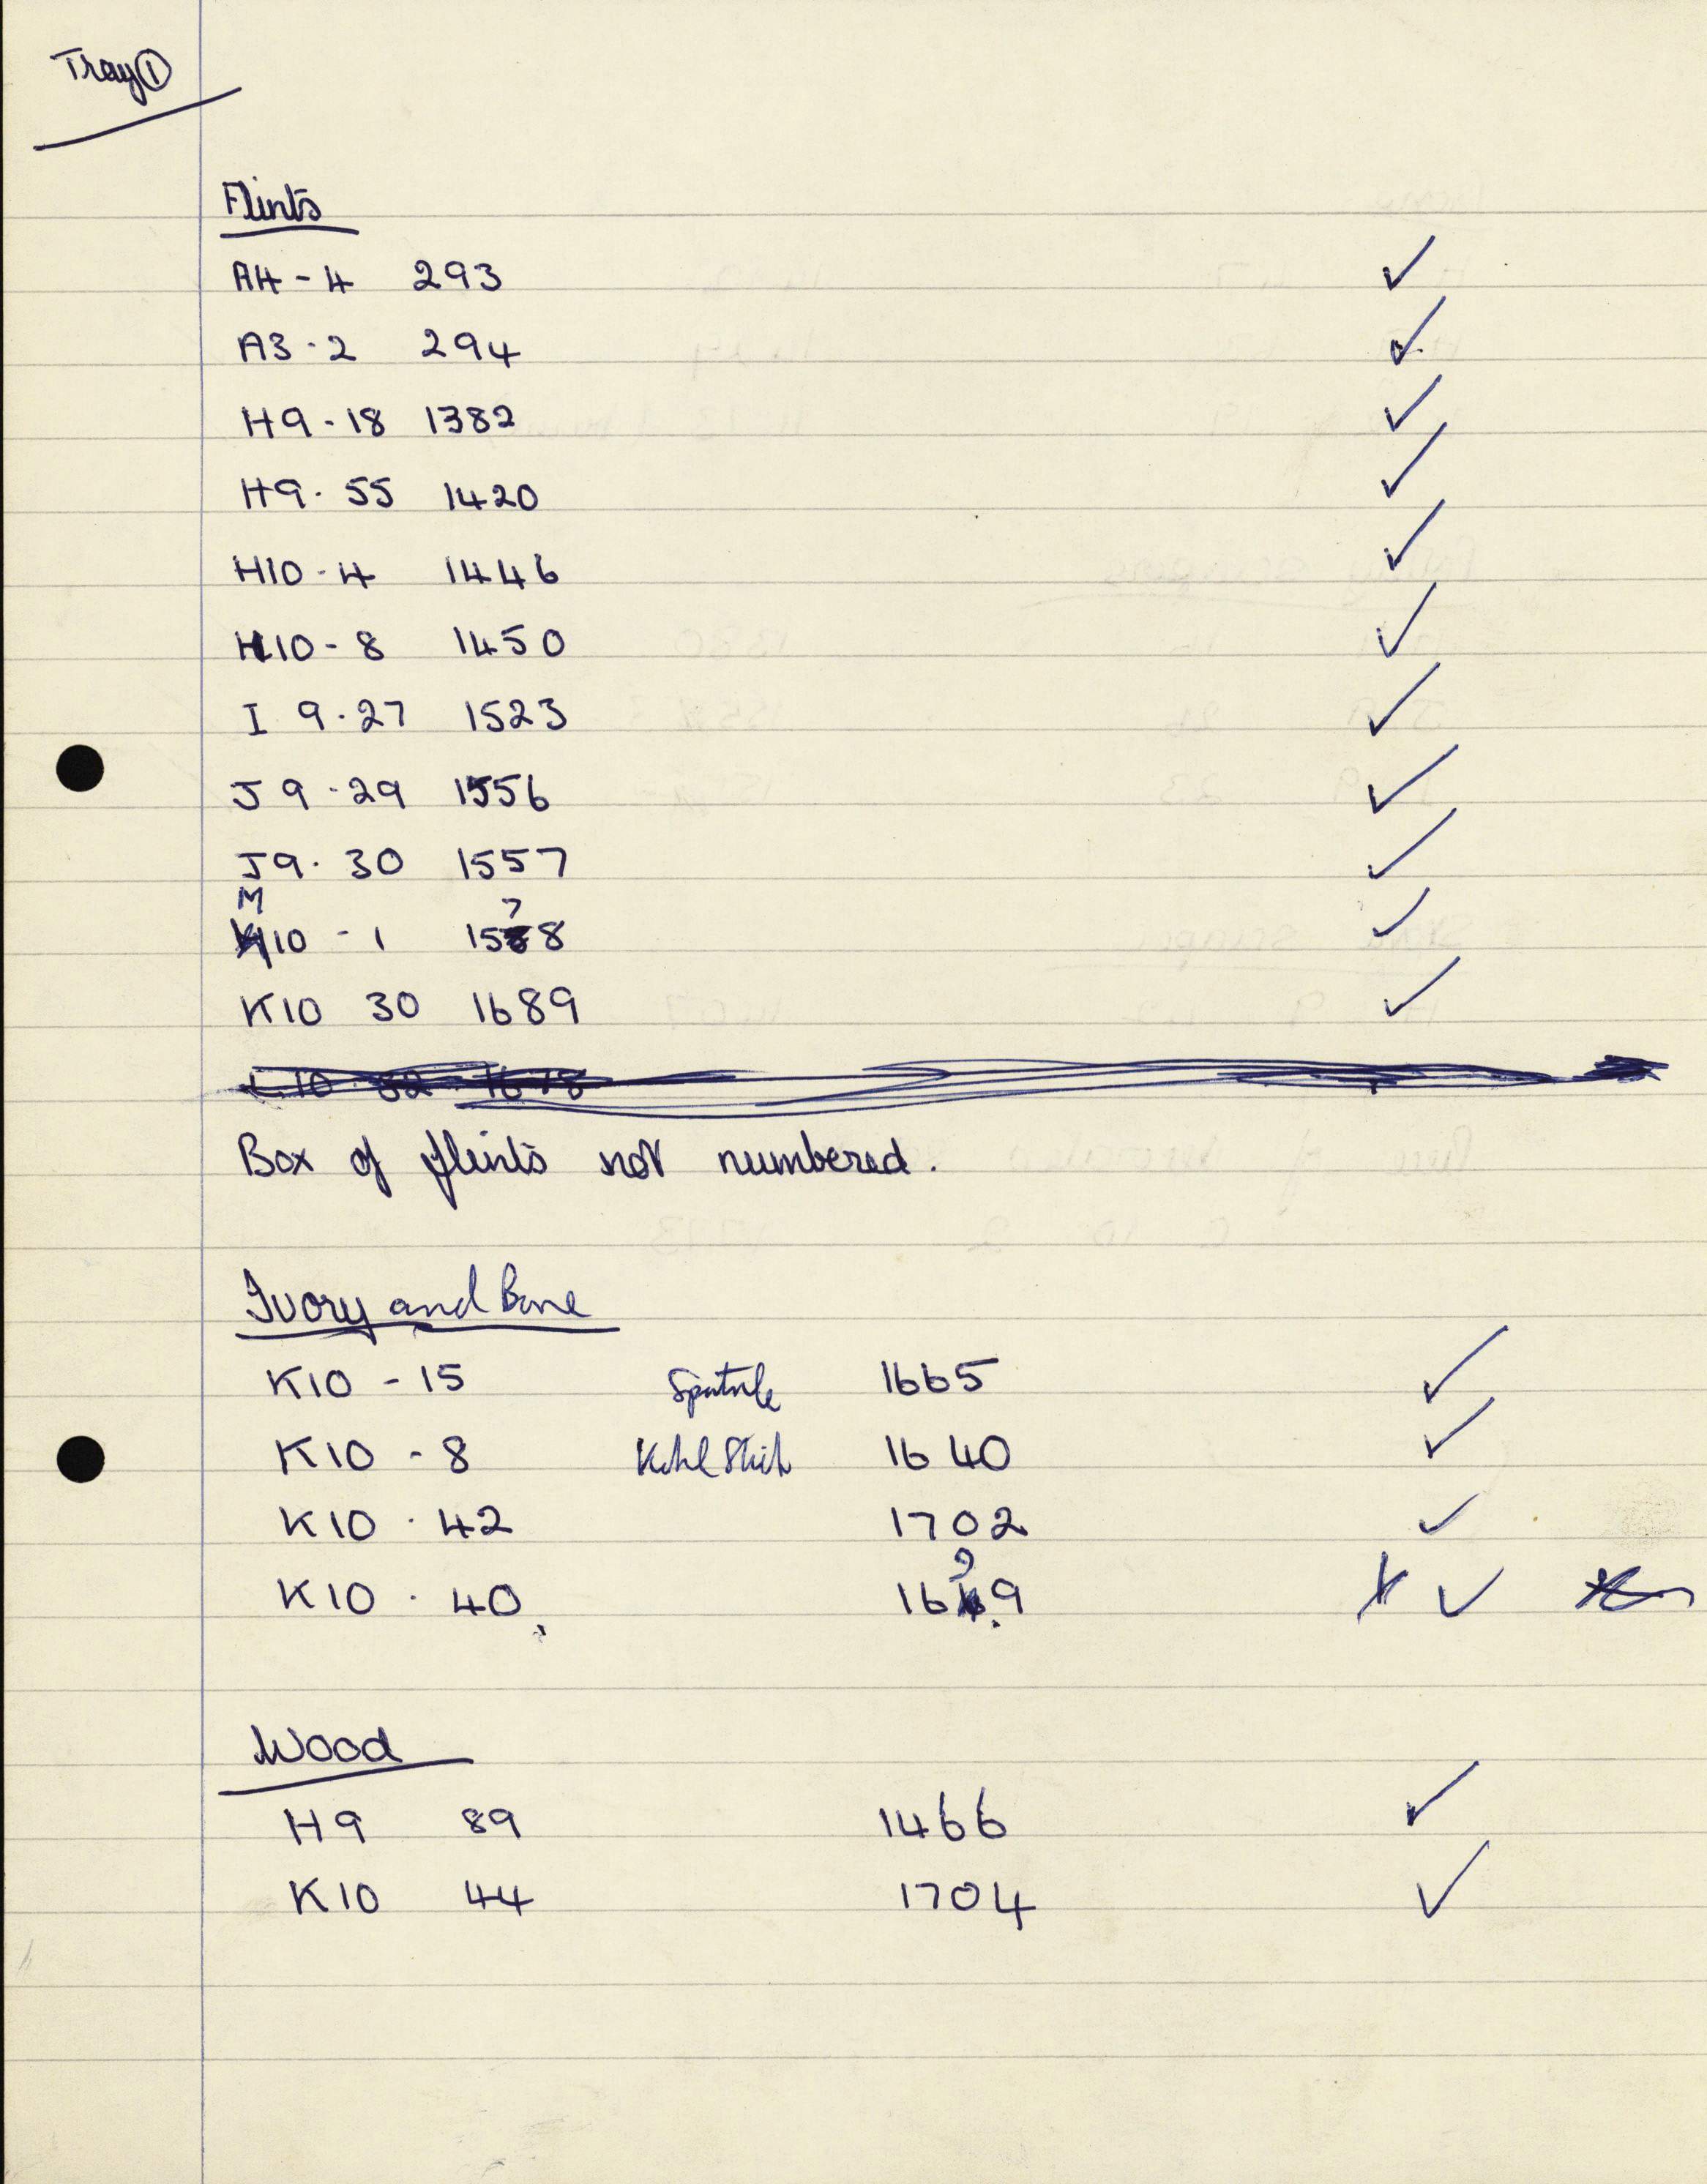 Tray ①
Flints
A4 - 4 293 ✓
A3 · 2 294 ✓
H9 - 18 1382 ✓
H9 · 55 1420 ✓
H10 - 4 1446 ✓
H10 - 8 1450 ✓
I 9 · 27 1523 ✓
J 9 · 29 1556 ✓
J9 · 30 1557 ✓
M10 - 1 1578 ✓
K10 30 1689 ✓
Box of flints not numbered.
Ivory and Bone
K10 - 15 Spatula 1665 ✓
K10 - 8 Kohl Stick 1640 ✓
K10 · 42 1702 ✓
K10 · 40 1699 ✓
Wood
H9 89 1466 ✓
K10 44 1704 ✓